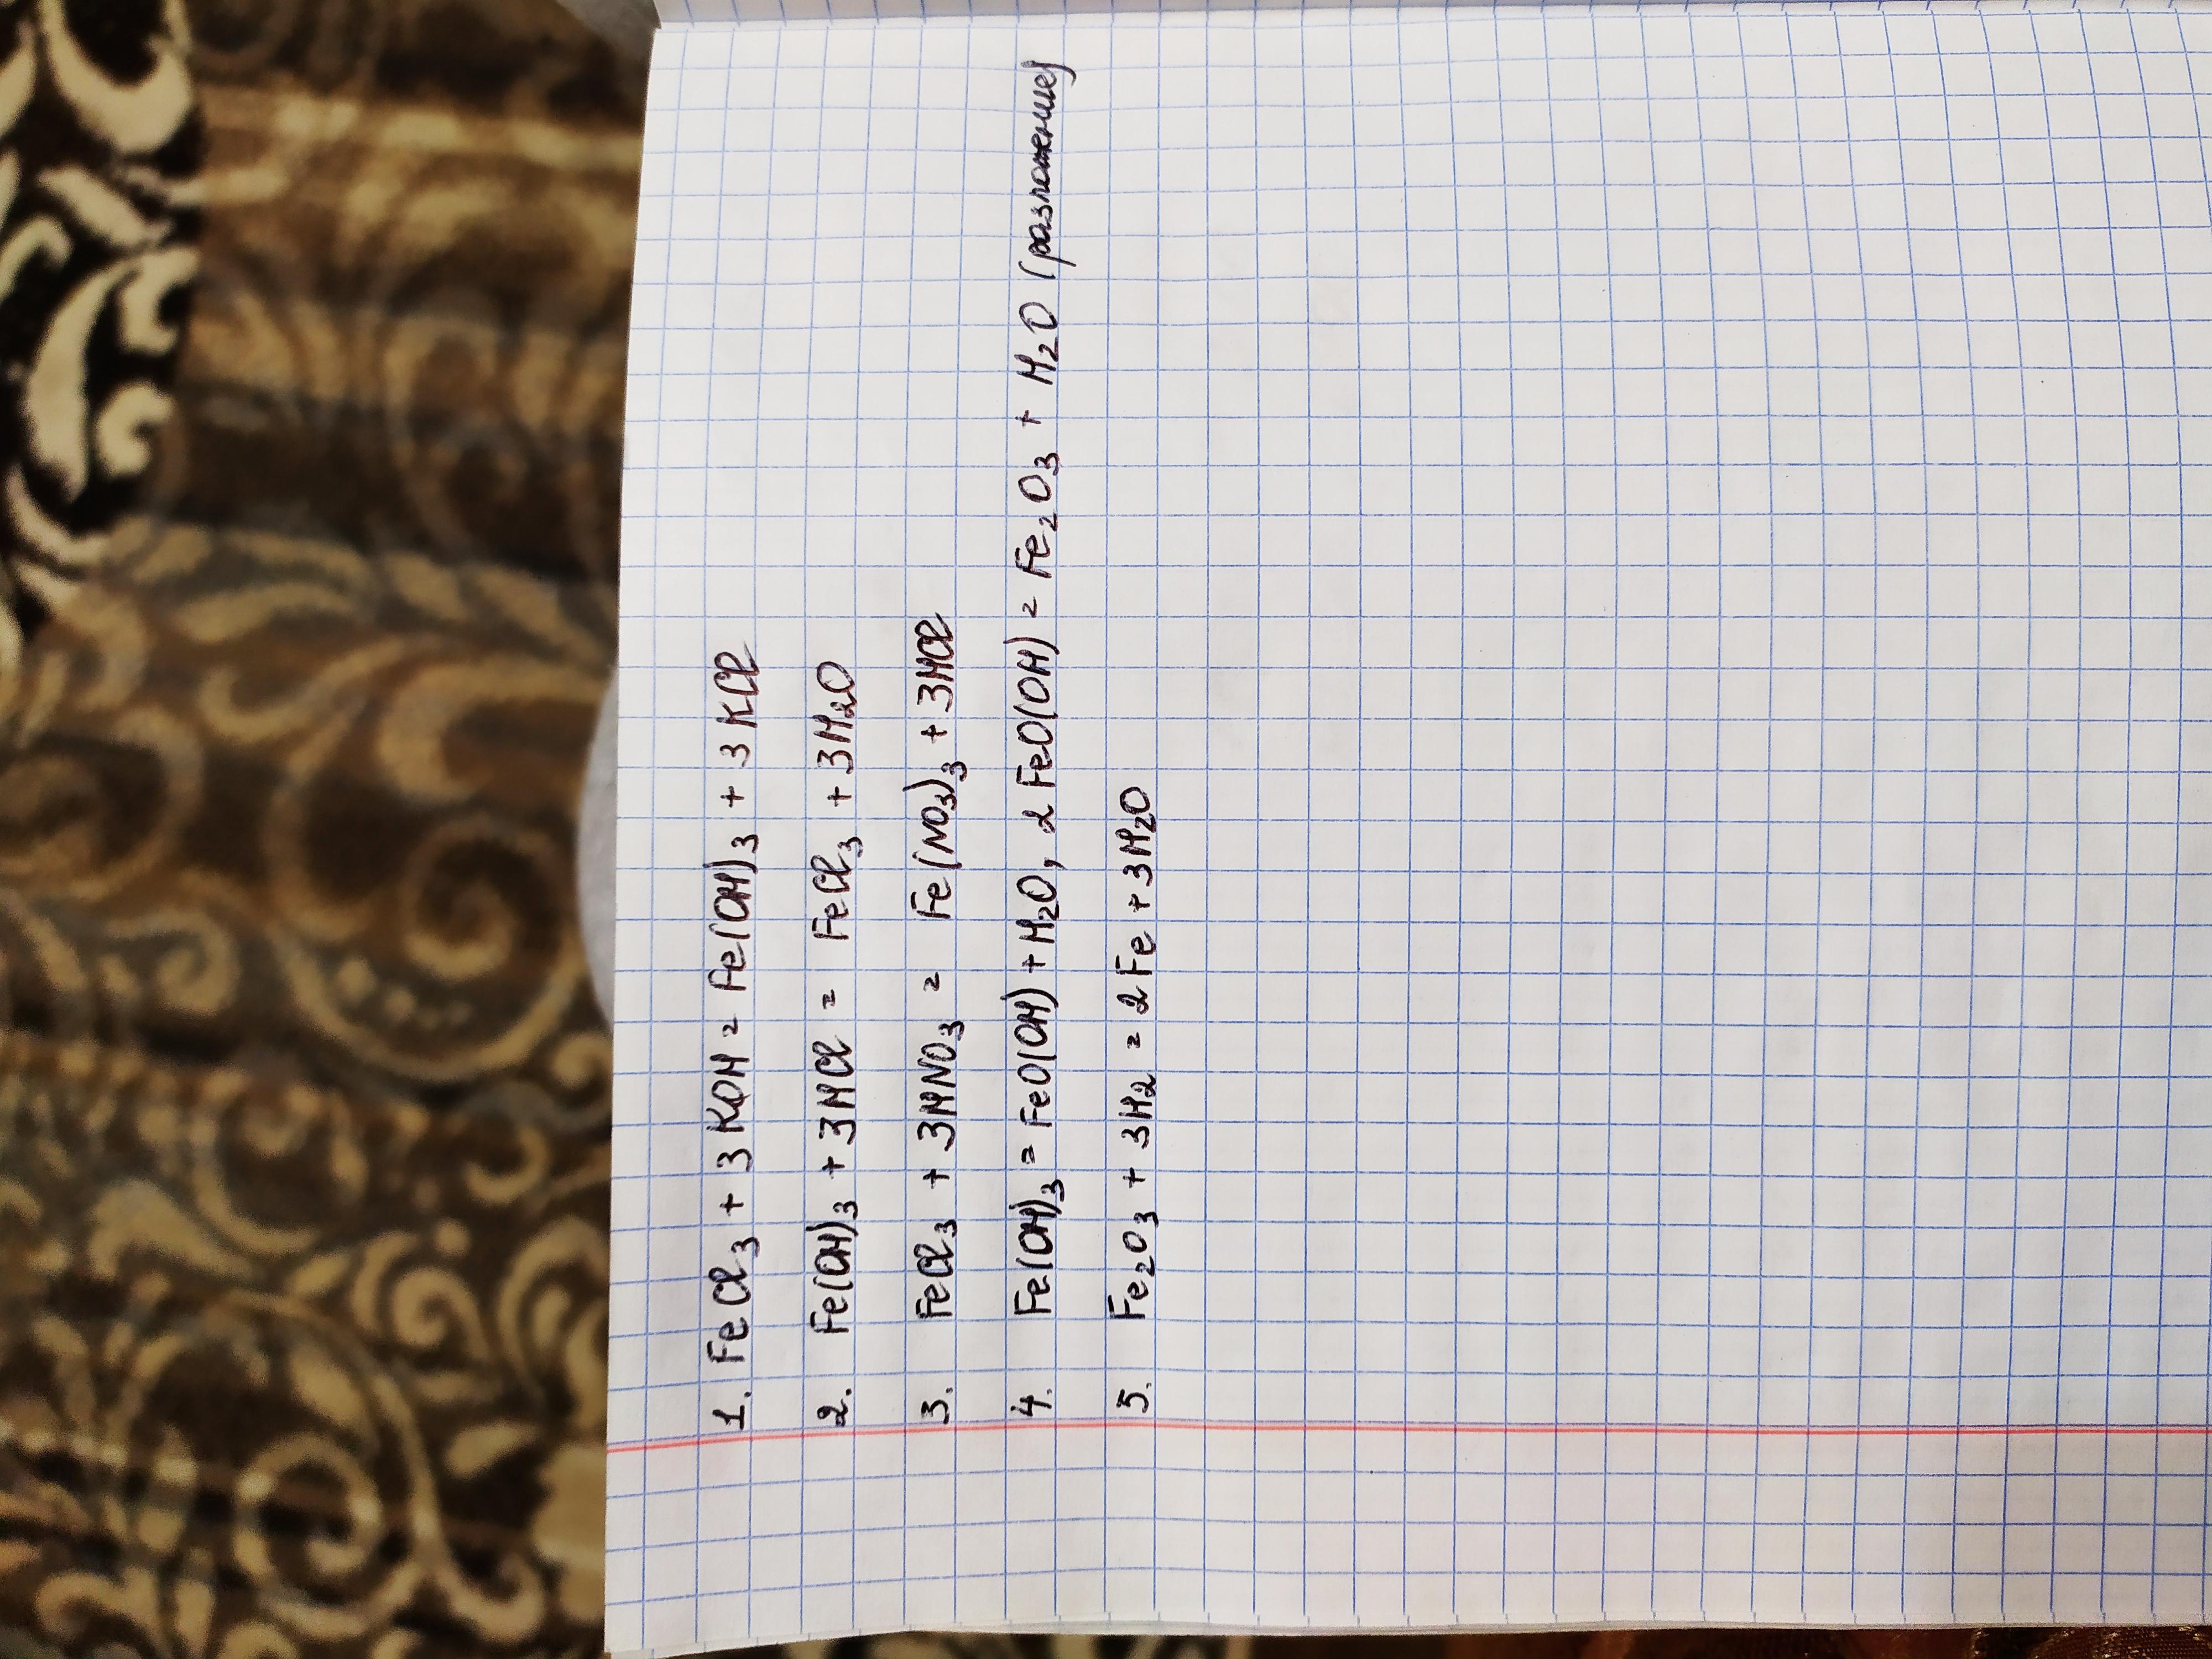 1. FeCl₃ + 3KOH = Fe(OH)₃ + 3KCl
2. Fe(OH)₃ + 3HCl = FeCl₃ + 3H₂O
3. FeCl₃ + 3HNO₃ = Fe(NO₃)₃ + 3HCl
4. Fe(OH)₃ = FeO(OH) + H₂O, 2FeO(OH) = Fe₂O₃ + H₂O (разложение)
5. Fe₂O₃ + 3H₂ = 2Fe + 3H₂O